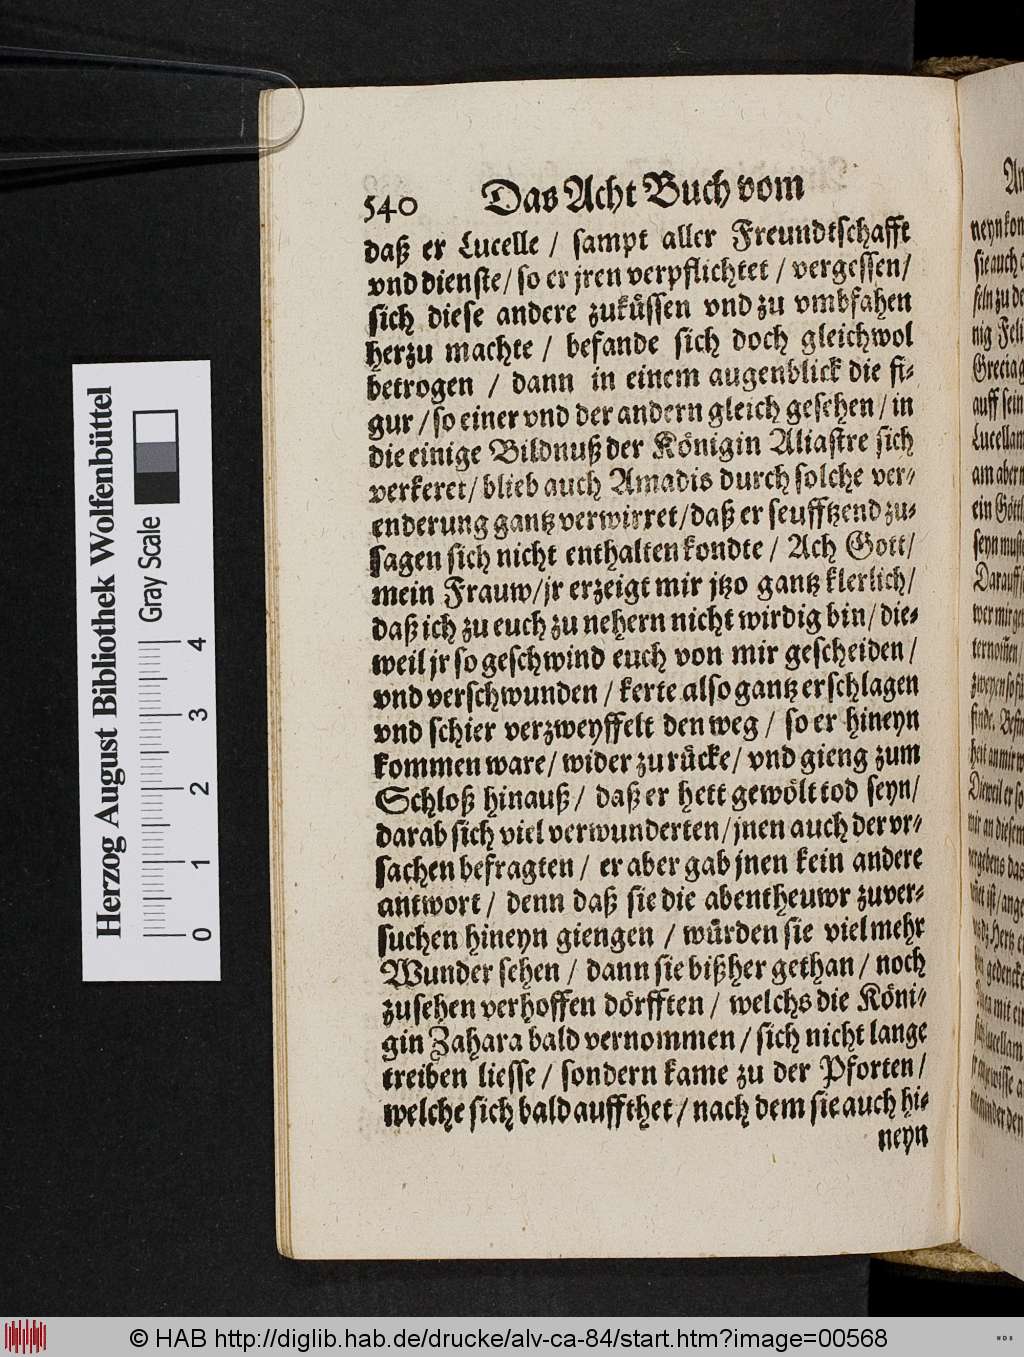 540 Das Acht Buch vom
daß er Lucelle / sampt aller Freundtschafft
vnd dienste / so er jren verpflichtet / vergessen /
sich diese andere zuküssen vnd zu vmbfahen
herzu machte / befande sich doch gleichwol
betrogen / dann in einem augenblick die fi-
gur / so einer vnd der andern gleich gesehen / in
die einige Bildnuß der Königin Aliastre sich
verkeret / blieb auch Amadis durch solche ver-
enderung gantz verwirret / daß er seufftzend zu-
sagen sich nicht enthalten kondte / Ach Gott /
mein Frauw / jr erzeigt mir jtzo gantz klerlich /
daß ich zu euch zu nehern nicht wirdig bin / die-
weil jr so geschwind euch von mir gescheiden /
vnd verschwunden / kerte also gantz erschlagen
vnd schier verzweyffelt den weg / so er hineyn
kommen ware / wider zu rücke / vnd gieng zum
Schloß hinauß / daß er hett gewölt tod seyn /
darab sich viel verwunderten / jnen auch der vr-
sachen befragten / er aber gab jnen kein andere
antwort / denn daß sie die abentheuwr zuver-
suchen hineyn giengen / würden sie viel mehr
Wunder sehen / dann sie bißher gethan / noch
zusehen verhoffen dörfften / welchs die Köni-
gin Zahara bald vernommen / sich nicht lange
treiben liesse / sondern kame zu der Pforten /
welche sich bald auffthet / nach dem sie auch hi-
neyn
Herzog August Bibliothek Wolfenbüttel
Gray Scale
0 1 2 3 4
© HAB http://diglib.hab.de/drucke/alv-ca-84/start.htm?image=00568